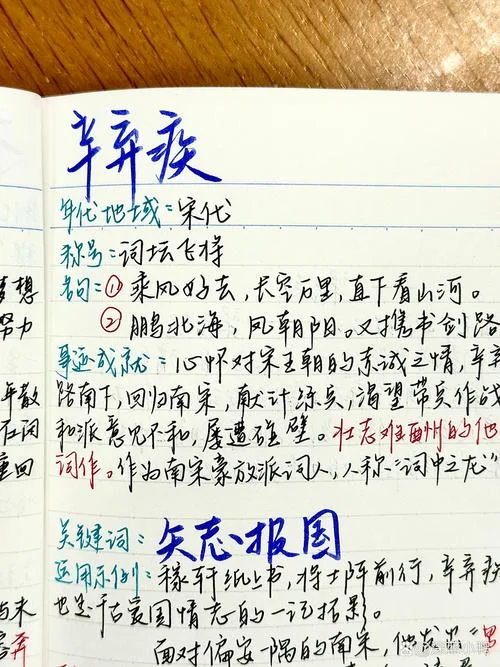 辛弃疾
年代地域：宋代
称号：词坛飞将
名句：① 乘风好去，长空万里，直下看山河。
② 鹏北海，凤朝阳。又携书剑路
梦想
努力
事迹成就：心怀对宋王朝的赤诚之情，辛弃
路南下，回归南宋，献计练兵，渴望带兵作战
和派意见不和，屡遭碰壁。壮志难酬的他
词作。作为南宋豪放派词人，人称"词中之龙"
年散
在词
重回
关键词：矢志报国
运用示例：稼轩纸上书，将士阵前行，辛弃疾
也是千古爱国情志的一记拓影。
面对偏安一隅的南宋，他发出"男
与未